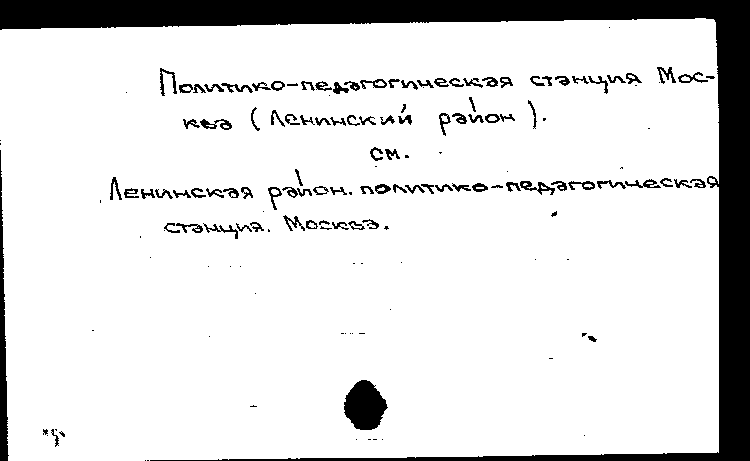 Политико-педагогическая станция Мос-
ква (Ленинский район).
см.
Ленинская район. политико-педагогическая
станция. Москва.